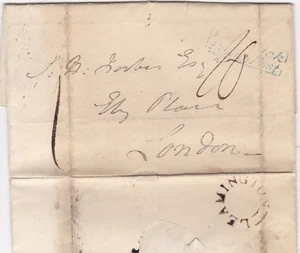 J. H. Forbes Esq
Ely Place
London
LEAMINGTON